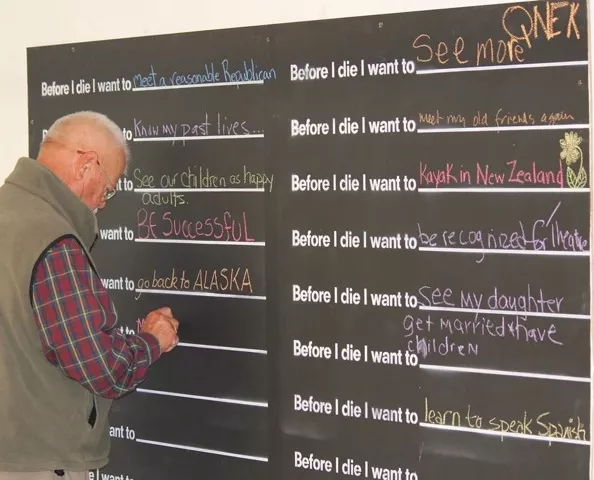 Before I die I want to meet a reasonable Republican
Know my past lives...
to See our children as happy
adults.
want to BE SUCCESSFUL
want to go back to ALASKA
ant to
Before I die I want to See more
QNEK
Before I die I want to meet my old friends again
Before I die I want to Kayak in New Zealand
Before I die I want to be recognized for Theatre
Before I die I want to see my daughter
get married & have
Before I die I want to children
Before I die I want to learn to speak Spanish
Before I die I want to